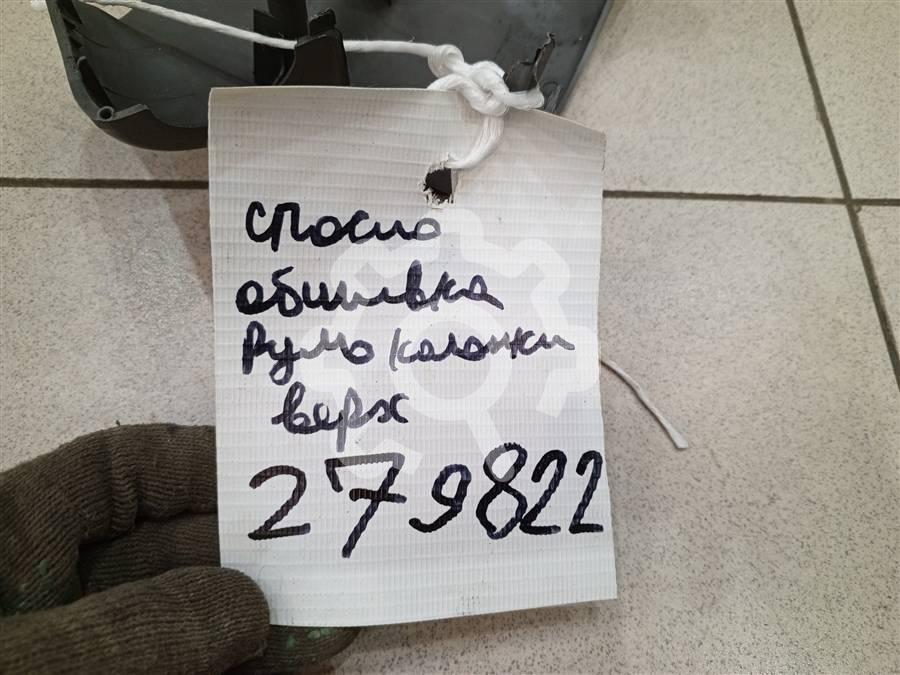 Спосио
обшивка
Рум колонки
верх
279822